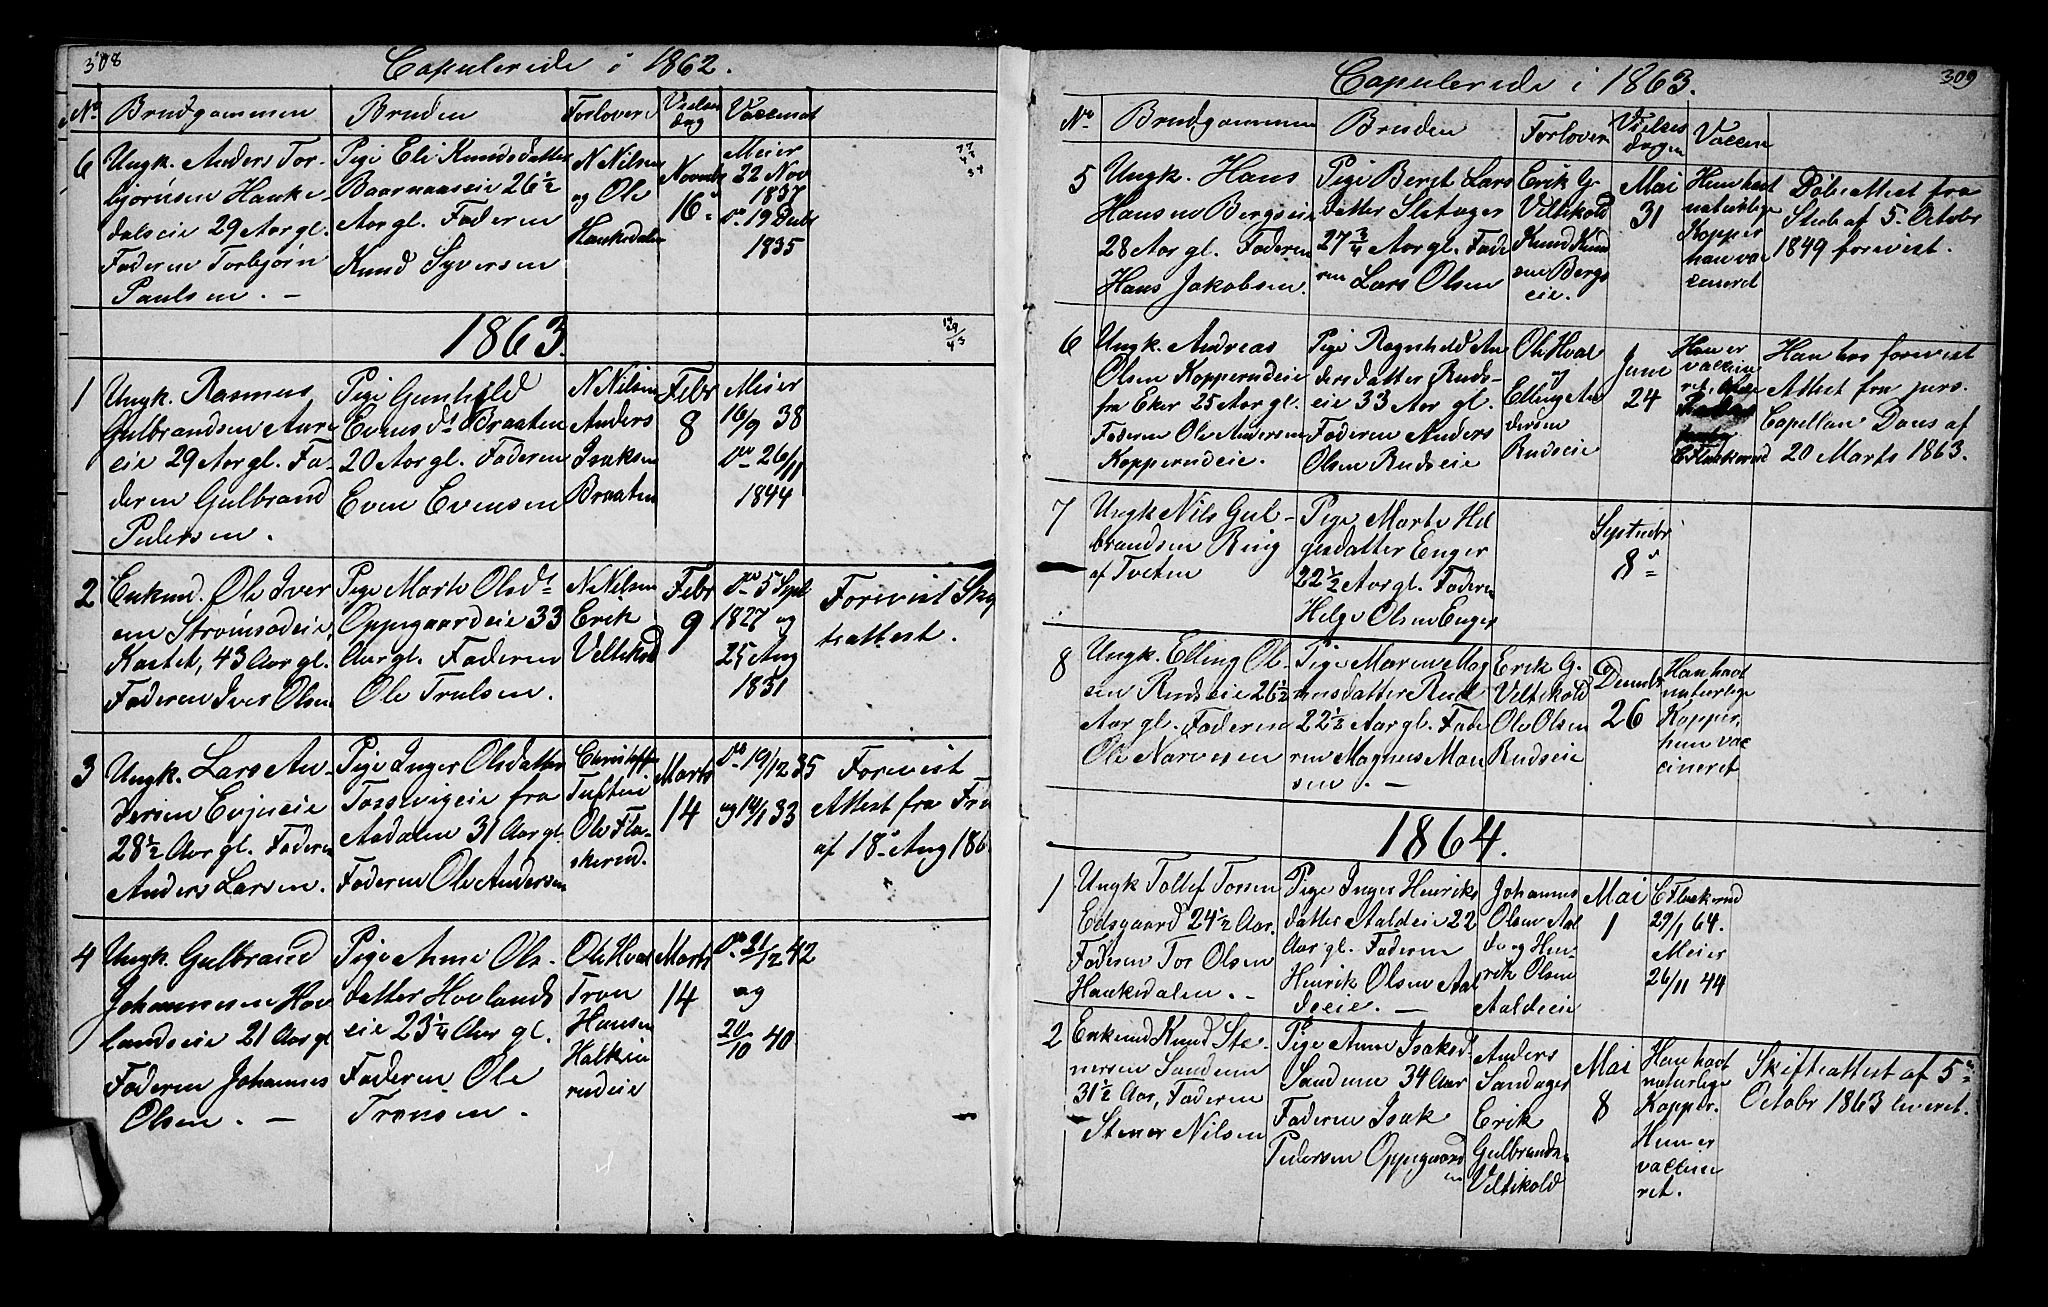 308
Copulerede i 1862.
No
Brudgommen
Bruden
Forlovere
Vielses
dag
Vaccinat
6
Ungk. Anders Tor-
bjørnsen Hauke-
dalseie 29 Aar gl.
Faderen Torbjørn
Paulsen. —
Pige Eli Knudsdatter
Baarnaaseie 26½
Aar gl. Faderen
Knud Syversen
N Nilsen
og Ole
Hauksdalen
Novmbr
16
Meier
22 Nov
1837
Do 19 Dcbr
1835
1863.
1
Ungk. Rasmus
Gulbrandsen Aure
eie 29 Aar gl. Fa-
deren Gulbrand
Pedersen.
Pige Gunhild
Evensdt Braaten
20 Aar gl. Faderen
Even Evensen
N Nilsen
Anders
Isaksen
Braaten
Febr
8
Meier
16/9 38
Do 26/11
1844
2
Enkmd. Ole Iver
sen Strømsodeie,
Kastet, 43 Aar gl.
Faderen Iver Olsen
Pige Marte Olsdt
Oppegaardeie 33
Aar gl. Faderen
Ole Trulsen.
N Nilsen
Erik
Veltekold
Febr
9
Do 5 Sept
1827 og
25 Aug
1831
Forevist Skif
teattest.
3
Ungk. Lars An-
dersen Evjueie
28½ Aar gl. Faderen
Anders Larsen.
Pige Inger Olsdatter
Tossevigeie fra
Aadalen 31 Aar gl.
Faderen Ole Andersen
Christoffer
Tuften
Ole Fla-
skerud.
Marts
14
Do 19/12 35
og 14/1 33
Forevist
Attest fra
af 18 Aug 186
4
Ungk. Gulbrand
Johannesen Hov
landseie 21 Aar gl
Faderen Johannes
Olsen. —
Pige Anne Ols-
datter Hovlands
eie 23¼ Aar gl.
Faderen Ole
Tronsen.
Ole Hval
Tron
Hansen
Halkin
rudeie
Marts
14
Do 21/12 42
og
20/10 40
309
Copulerede i 1863.
No
Brudgommen
Bruden
Forlover
Vielses
dagen
Vaccin
5
Ungk. Hans
Hansen Bergseie
28 Aar gl. Faderen
Hans Jakobsen.
Pige Berit Lars
datter Sletager
27¾ Aar gl. Fade
ren Lars Olsen
Erik G.
Veltekold
Knud Knud
sen Bergs
eie.
Mai
31
Hun havt
naturlige
Kopper
han vac
cineret
Døbeattest fra
Stub af 5. Octobr
1849 forevist.
6
Ungk. Andreas
Olsen Kopperudeie
fra Eker 25 Aar gl.
Faderen Ole Andersen
Kopperudeie.
Pige Ragnhild An
dersdatter Ruds-
eie 33 Aar gl.
Faderen Anders
Olsen Rudseie
Ole Hval
og
Elling An
dersen
Rudseie
Juni
24
Han er
vaccine
ret,
C Flaskerud
Han har forevist
Attest fra pers.
Capellan Daus af
20 Marts 1863.
7
Ungk Nils Gul-
brandsen Ring
af Tveten
Pige Marte Hel
gesdatter Enger
22½ Aar gl. Faderen
Helge Olsen Enger
Septmbr
8
8
Ungk. Elling Ol-
sen Rudseie 26½
Aar gl. Faderen
Ole Narvesen
Pige Maren Mag
nusdatter Rud
22½ Aar gl. Fade
ren Magnus Mon
sen. —
Erik G.
Veltekold
Ole Olsen
Rudseie
Decmbr
26
Han havt
naturlige
Kopper,
hun vac
cineret
1864.
1
Ungk Tollef Torsen
Edsgaard 24½ Aar.
Faderen Tor Olsen
Hauksdalen. —
Pige Inger Henriks
datter Aaldeie 22
Aar gl. Faderen
Henrik Olsen Aal
deie. —
Johannes
Olsen Aal
d og Hen-
rik Olsen
Aaldeie
Mai
1
C Flaskerud
27/1 64.
Meier
26/11 44
2
Enkemd Knud Ste-
nersen Sanden
31½ Aar, Faderen
Stener Nilsen
Pige Anne Isaksd.
Sanden 34 Aar
Faderen Isak
Pedersen Oppegaard
en
Anders
Sandager
Erik
Gulbrands.
Veltekold
Mai
8
Han havt
naturlige
Kopper.
Hun er
vaccine
ret.
Skifteattest af 5
Octobr 1863 leveret.